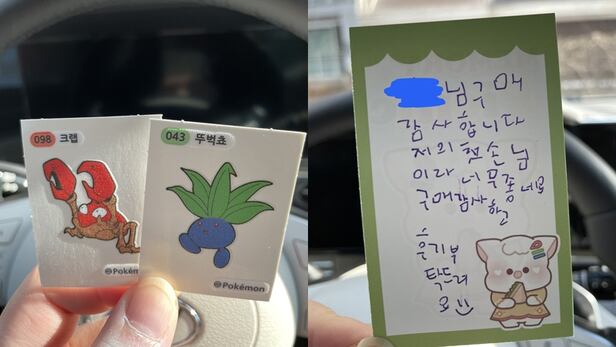 098 크랩
Pokémon
043 뚜벅쵸
Pokémon
님 구매
감사합니다
저의 첫손님
이라 너무 좋네요
구매감사 한
후기 부
탁드려
요